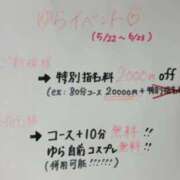 ゆらイベント♡
(5/22〜5/28)
→ 特別指名料2000円off
(ex: 80分コース20000円+特別指名
→ コース+10分 無料!!
ゆら自前コスプレ 無料!!
(併用可能!!!!!!)